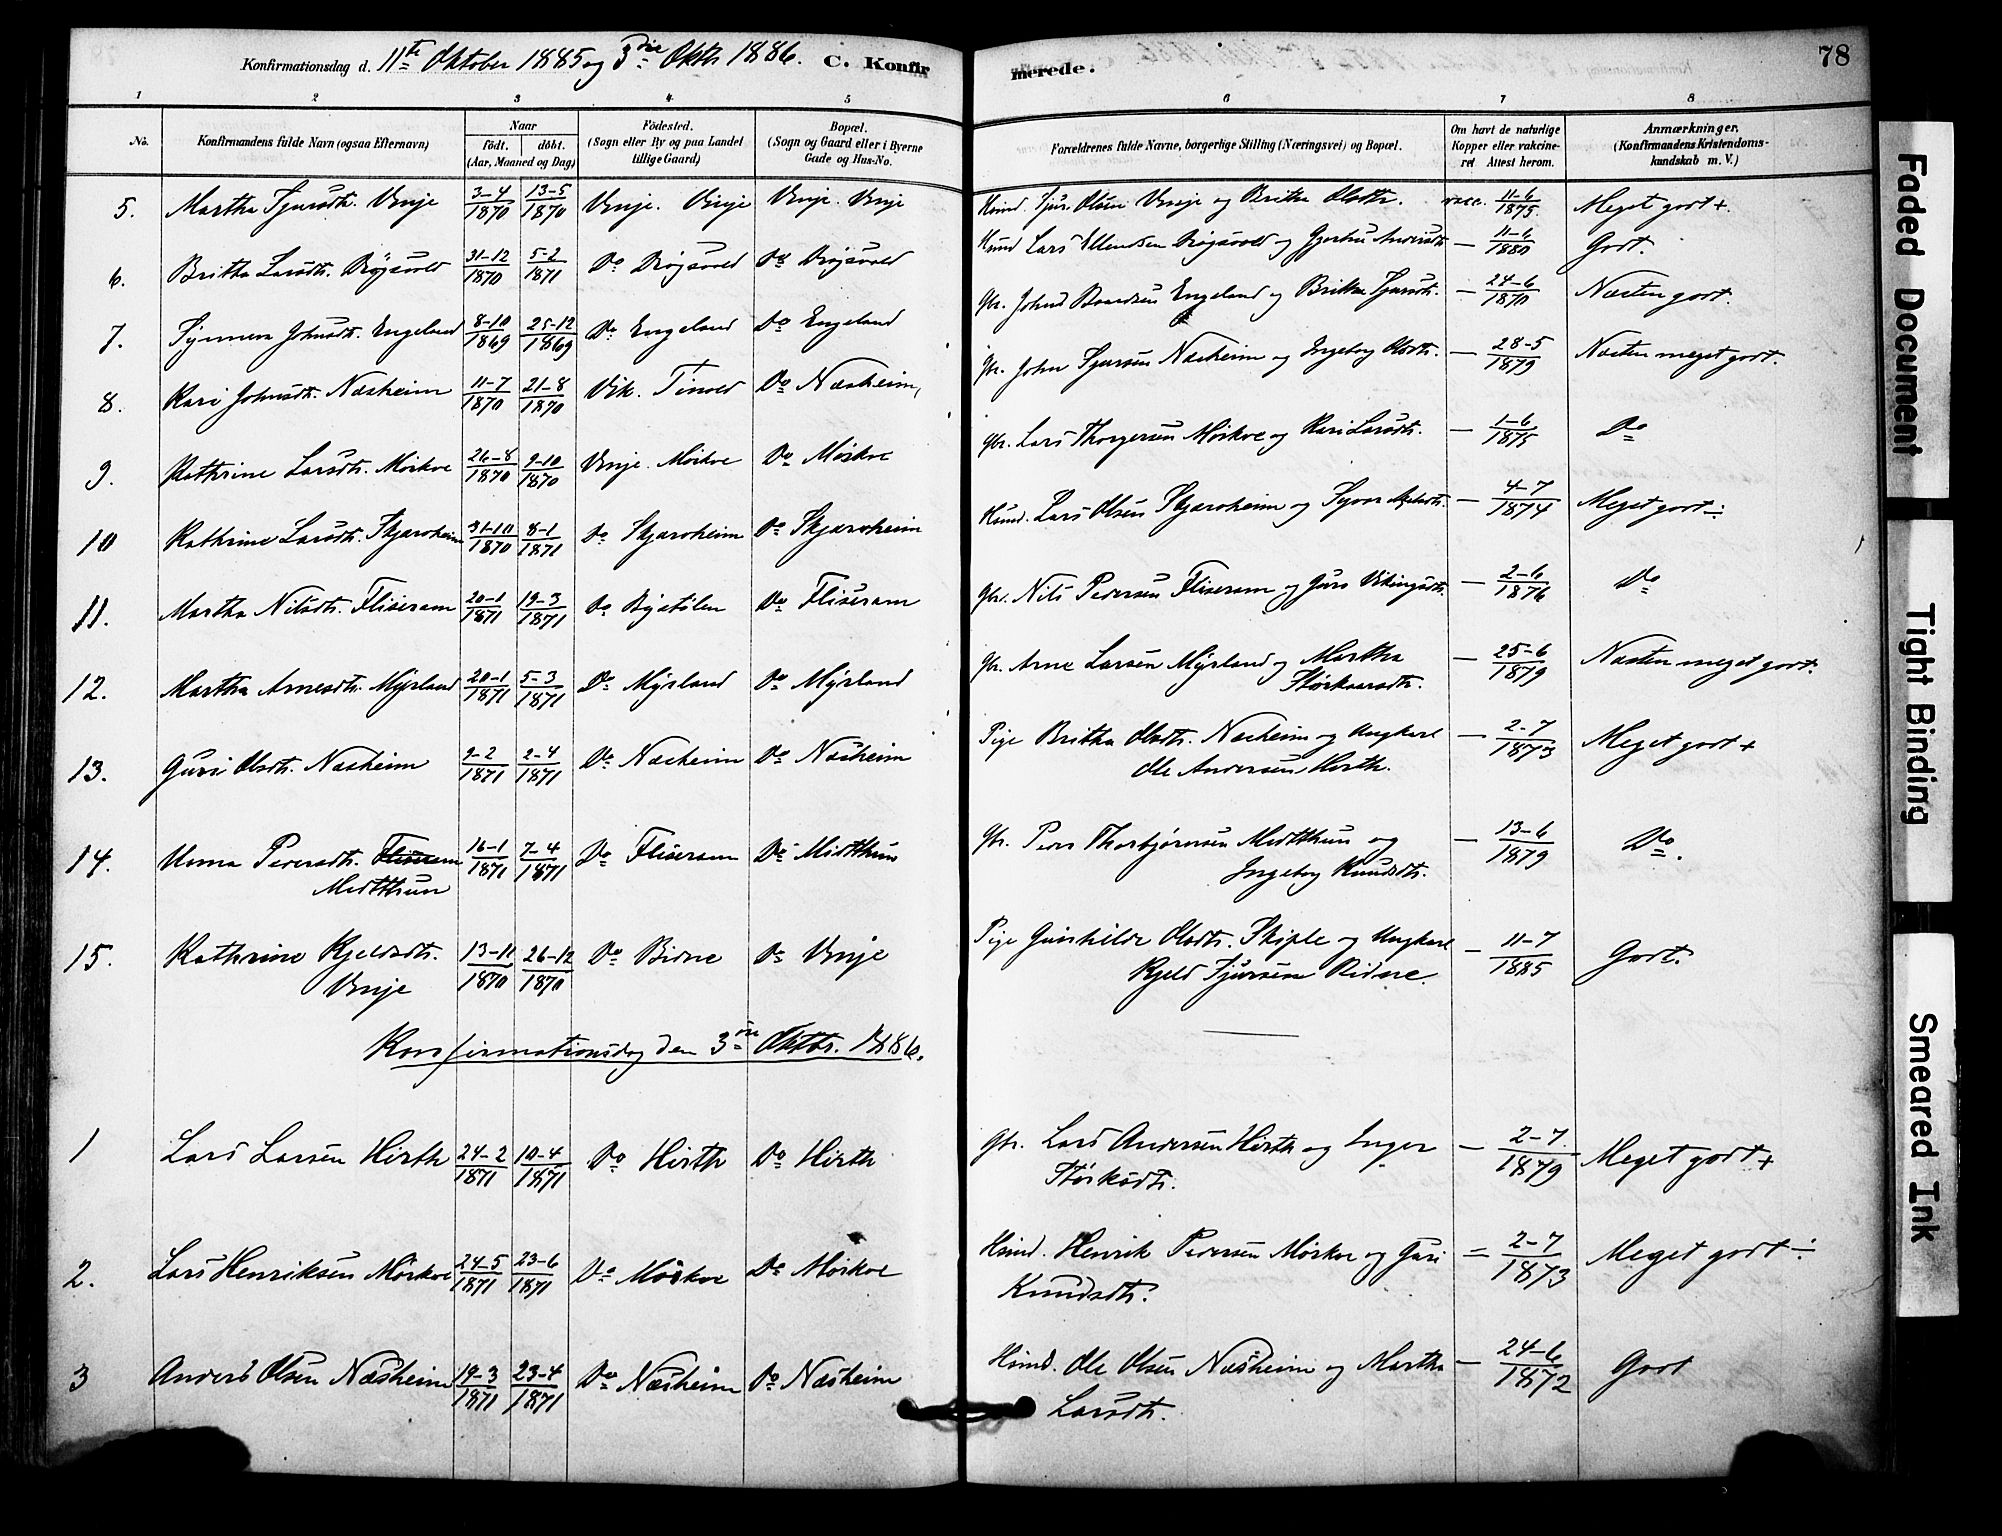 Konfirmationsdag d. 11te Oktober 1885 og 3die Oktbr 1886. C. Konfirmerede. 78
1 2 3 4 5 6 7 8
No. Konfirmandens fulde Navn (ogsaa Efternavn) Naar født. døbt. (Aar, Maaned og Dag) Fødested. (Sogn eller By og paa Landet tillige Gaard) Bopæl. (Sogn og Gaard eller i Byerne Gade og Hus-No. Forældrenes fulde Navne, borgerlige Stilling (Næringsvei) og Bopæl. Om havt de naturlige Kopper eller vakcineret Attest herom. Anmærkninger. (Konfirmandens Kristendomskundskab m. V.)
5. Martha Sjursdtr. Vinje 3-4 1870 13-5 1870 Vinje. Vinje Vinje. Vinje Husmd. Sjur Olsen Vinje og Britha Olsdtr. vacc. 11-6 1875 Meget godt +.
6. Britha Larsdtr. Drøgsvold 31-12 1870 5-2 1871 Do Drøgsvold Do Drøgsvold Husmd Lars Ellendsen Drøgsvold og Gjertru Andersdtr — 11-6 1880 Godt.
7. Synneva Johnsdtr. Engeland 8-10 1869 25-12 1869 Do Engeland Do Engeland Gbr. Johns Baardsen Engeland og Britha Sjursdtr. — 24-6 1870 Næsten godt.
8. Kari Johnsdtr. Næsheim 11-7 1870 21-8 1870 Vik. Tinold Do Næsheim, Gbr. John Sjursen Næsheim og Ingeborg Olsdtr. — 28-5 1879 Næsten meget godt.
9. Kathrine Larsdtr. Mörkve 26-8 1870 9-10 1870 Vinje. Mörkve Do Mörkve Gbr. Lars Thorgersen Mörkve og Kari Larsdtr. — 1-6 1875 Do
10 Kathrine Larsdtr. Skjærsheim 31-10 1870 8-1 1871 Do Skjærsheim Do Skjærsheim Husmd. Lars Olsen Skjærsheim og — 4-7 1874 Meget godt ÷
11. Martha Nilsdtr. Fliseram 20-1 1871 19-3 1871 Do Bystölen Do Fliseram Gbr. Nils Pedersen Fliseram og Guro Vikingsdtr. — 2-6 1876 Do
12. Martha Arnesdtr. Myrland 20-1 1871 5-3 1871 Do Myrland Do Myrland Gbr. Arne Larsen Myrland og Martha — 25-6 1879 Næsten meget godt.
Störkaarsdtr.
13. Guri Olsdtr. Næsheim 9-2 1871 2-4 1871 Do Næsheim Do Næsheim Pige Britha Olsdtr. Næsheim og Ungkarl — 2-7 1873 Meget godt +
Ole Andersen Hirth.
14. Unna Pedersdtr. Fliseram 16-1 1871 7-4 1871 Do Fliseram Do Midtthun Gbr. Peder Thorbjørnsen Midtthun og — 13-6 1879 Do.
Midtthun Ingeborg Knudsdtr.
15. Kathrine Kjeldsdtr. 13-11 1870 26-12 1870 Do Bidne Do Vinje Pige Gunhilde Olsdtr. Skiple og Ungkarl — 11-7 1885 Godt.
Vinje Kjeld Sjursen Bidne.
Konfirmationsdag den 3die Oktbr. 1886.
1 Lars Larsen Hirth 24-2 1871 10-4 1871 Do Hirth Do Hirth Gbr. Lars Andersen Hirth og Inger — 2-7 1879 Meget godt +
Störksdtr.
2. Lars Henriksen Mörkve 24-5 1871 23-6 1871 Do Mörkve Do Mörkve Husmd. Henrik Pedersen Mörkve og Guri = 2-7 1873 Meget godt ÷
Knudsdtr.
3 Anders Olsen Næsheim 19-3 1871 23-4 1871 Do Næsheim Do Næsheim Husmd. Ole Olsen Næsheim og Martha — 24-6 1872 Godt
Larsdtr.
Faded Document
Tight Binding
Smeared Ink